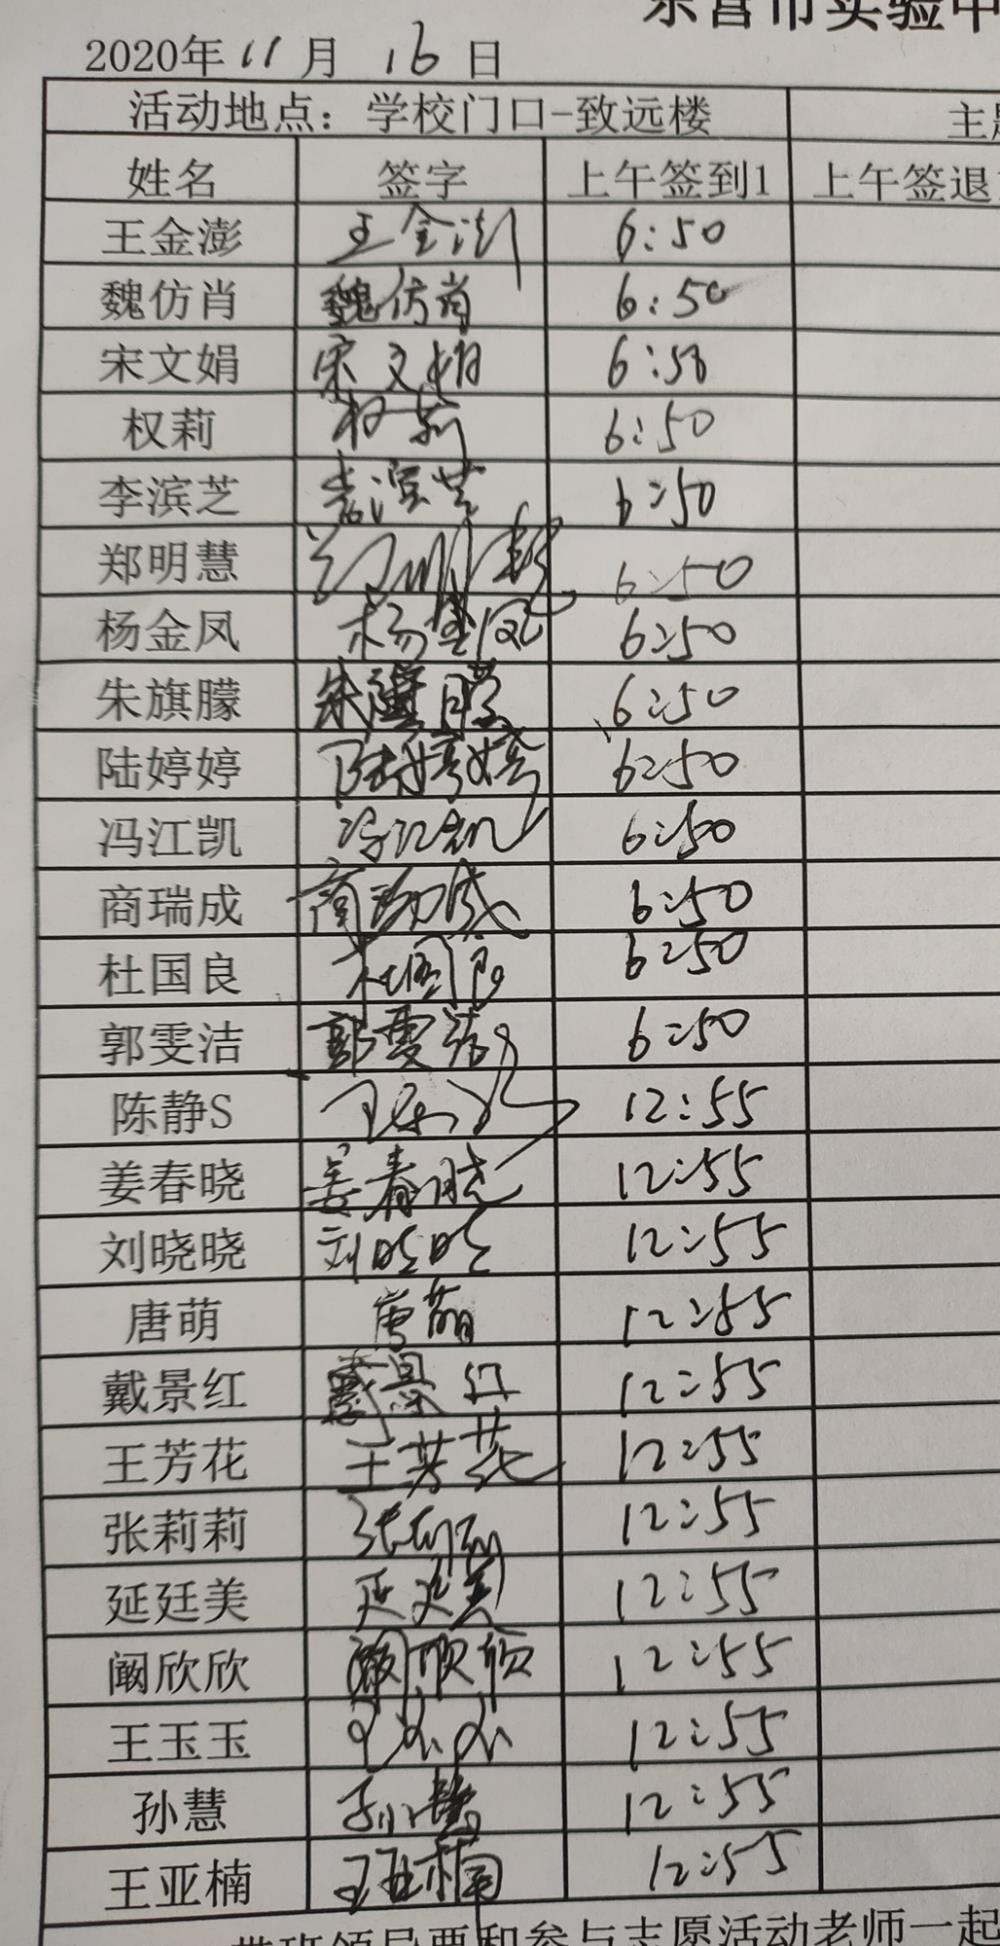 东营市实验中
2020年11月16日
活动地点：学校门口-致远楼 主题
姓名 签字 上午签到1 上午签退
王金澎 王金澎 6:50
魏仿肖 魏仿肖 6:50
宋文娟 宋文娟 6:50
权莉 权莉 6:50
李滨芝 李滨芝 6:50
郑明慧 郑明慧 6:50
杨金凤 杨金凤 6:50
朱旗朦 朱旗朦 6:50
陆婷婷 陆婷婷 6:50
冯江凯 冯江凯 6:50
商瑞成 商瑞成 6:50
杜国良 杜国良 6:50
郭雯洁 郭雯洁 6:50
陈静S 12:55
姜春晓 姜春晓 12:55
刘晓晓 刘晓晓 12:55
唐萌 唐萌 12:55
戴景红 戴景红 12:55
王芳花 王芳花 12:55
张莉莉 张莉莉 12:55
延廷美 延廷美 12:55
阚欣欣 阚欣欣 12:55
王玉玉 王玉玉 12:55
孙慧 孙慧 12:55
王亚楠 王亚楠 12:55
带班领导要和参与志愿活动老师一起